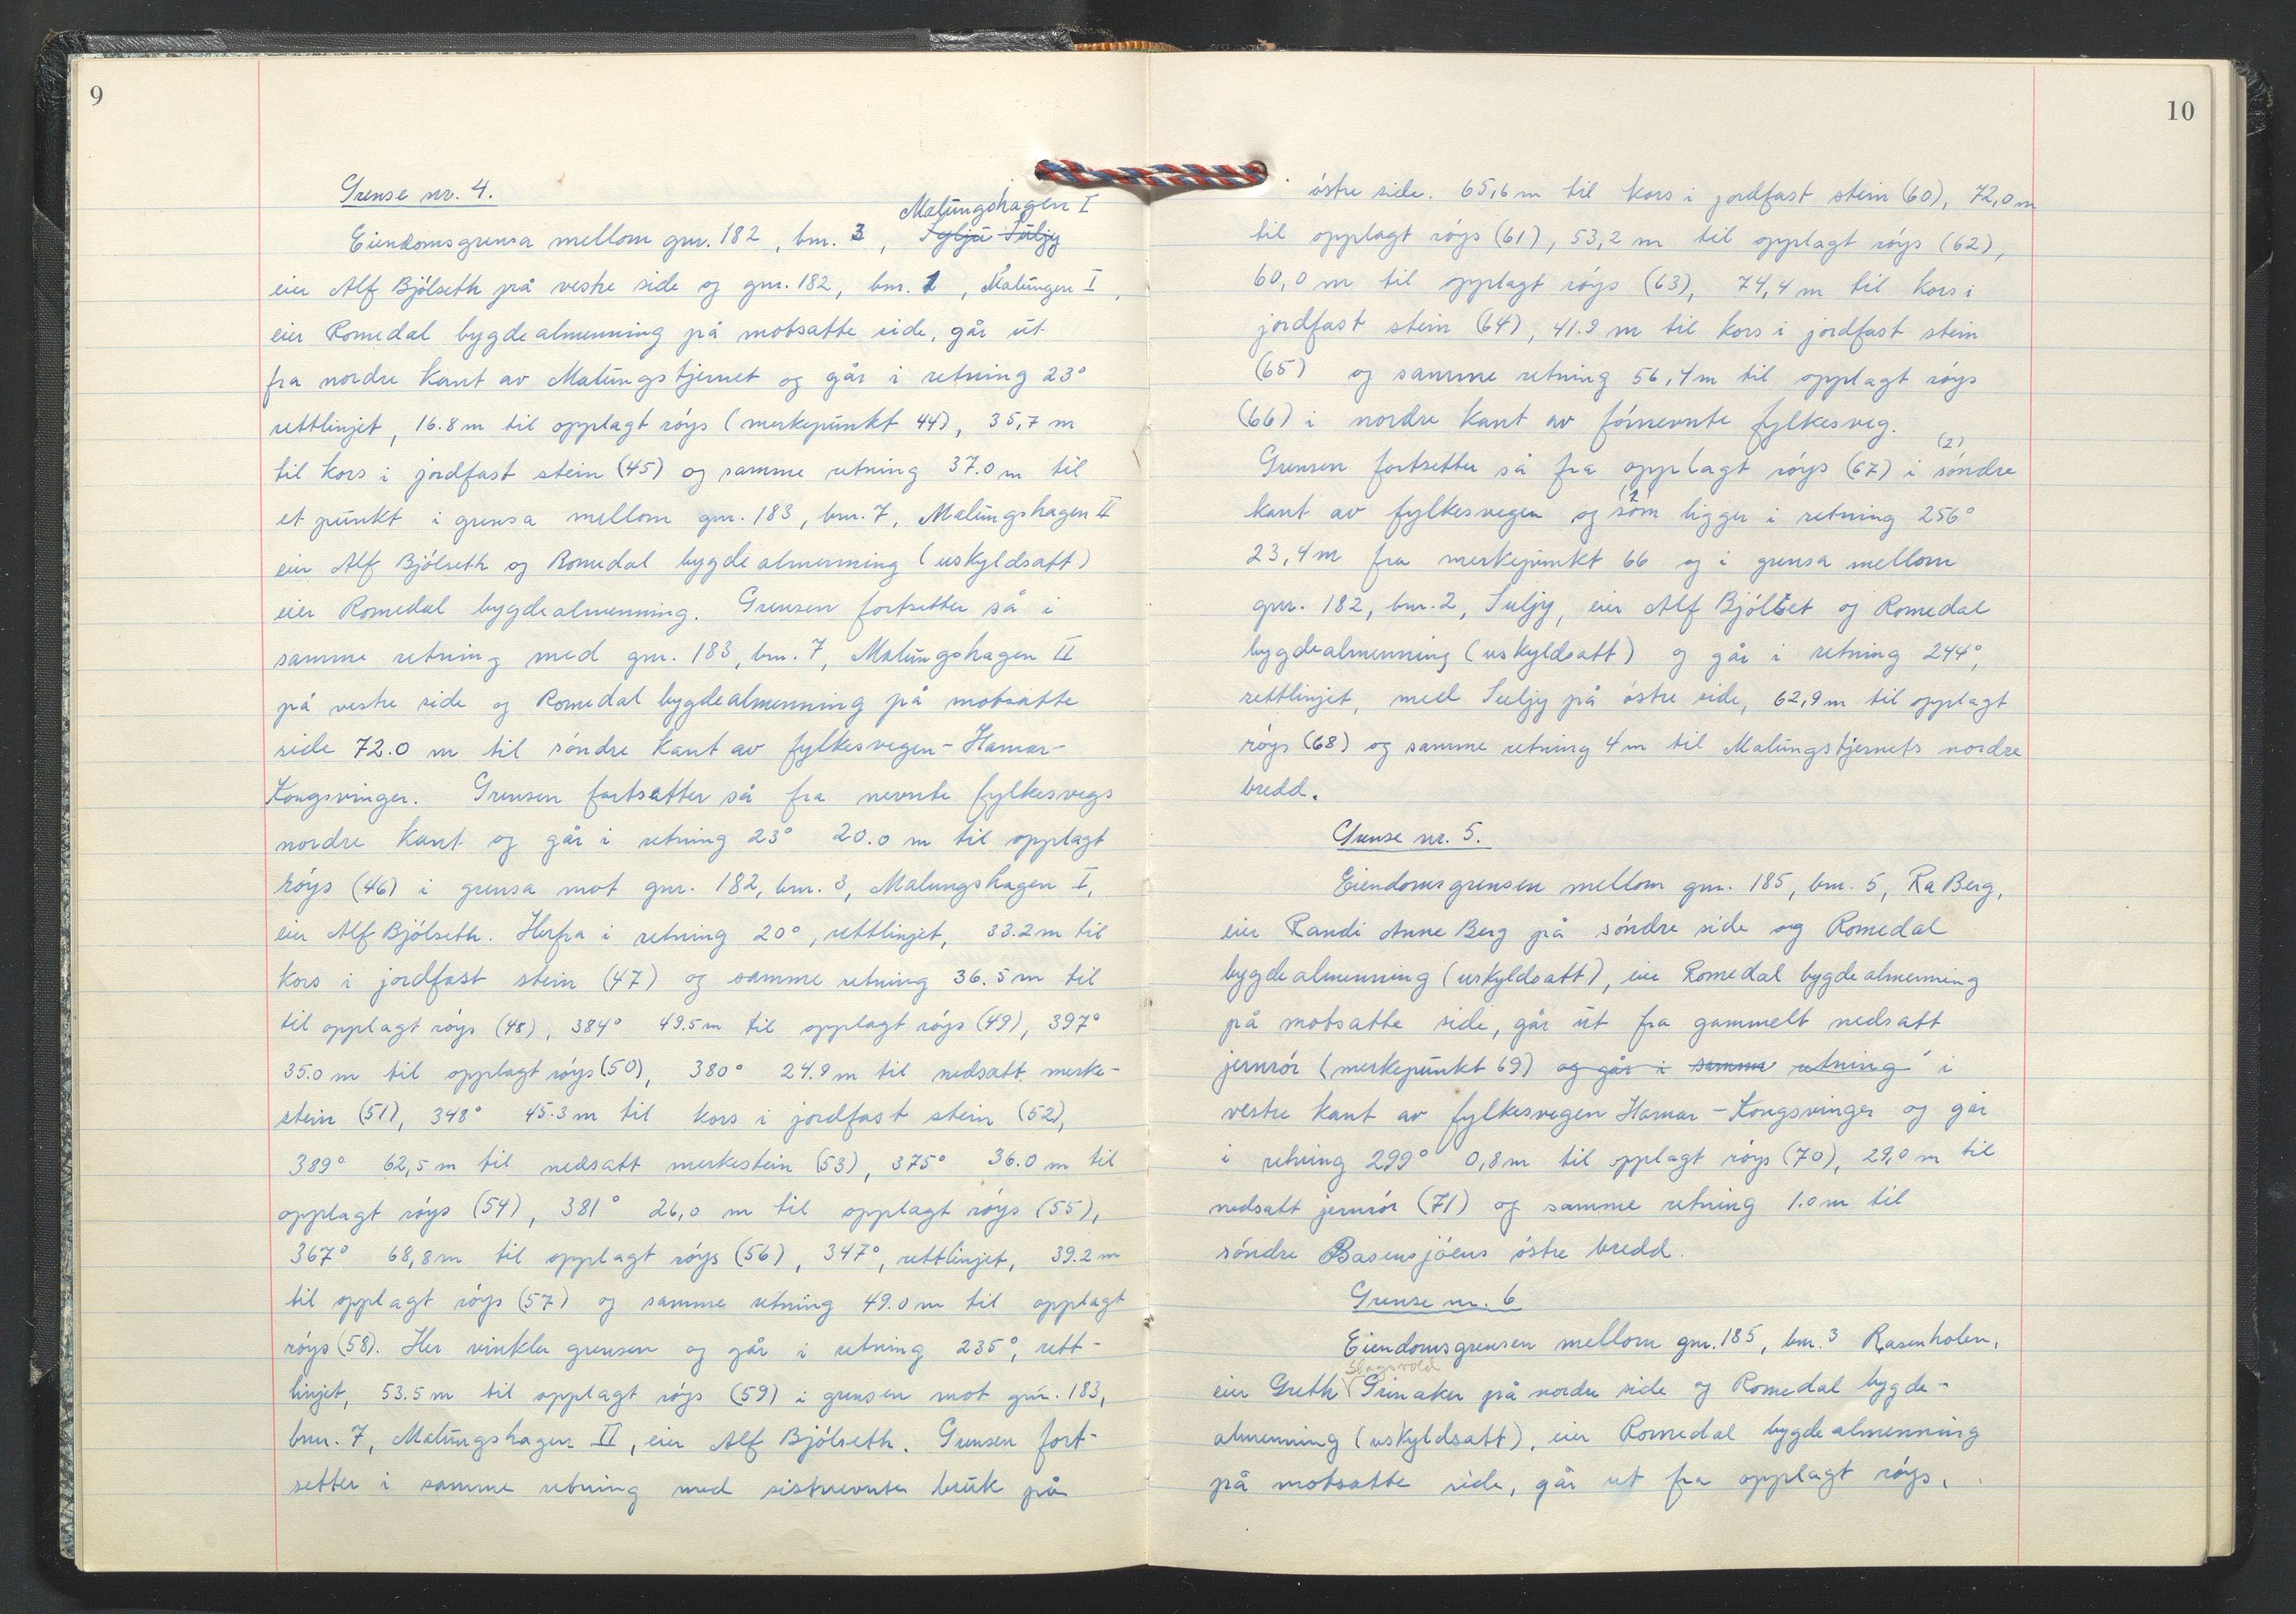 9
Grense nr. 4.
Malungshagen I
Eiendomsgrensa mellom gnr. 182, bnr. 3, Sylju Suljy
eier Alf Bjölseth på vestre side og gnr. 182, bnr. 1, Malungen I,
eier Romedal bygdealmenning på motsatte side, går ut
fra nordre kant av Malungstjernet og går i retning 23°
rettlinjet, 16.8 m til opplagt röys (merkepunkt 44), 35,7 m
til kors i jordfast stein (45) og samme retning 37.0 m til
et punkt i grensa mellom gnr. 183, bnr. 7, Malungshagen II
eier Alf Bjölseth og Romedal bygdealmenning (uskyldsatt)
eier Romedal bygdealmenning. Grensen fortsetter så i
samme retning med gnr. 183, bnr. 7, Malungshagen II
på vestre side og Romedal bygdealmenning på motsatte
side 72.0 m til söndre kant av fylkesvegen - Hamar-
Kongsvinger. Grensen fortsetter så fra nevnte fylkesvegs
nordre kant og går i retning 23° 20.0 m til opplagt
röys (46) i grensa mot gnr. 182, bnr. 3, Malungshagen I,
eier Alf Bjölseth. Herfra i retning 20°, rettlinjet, 33.2 m til
kors i jordfast stein (47) og samme retning 36.5 m til
til opplagt röys (48), 384° 49.5 m til opplagt röys (49), 397°
35.0 m til opplagt röys (50), 380° 24.9 m til nedsatt merke-
stein (51), 348° 45.3 m til kors i jordfast stein (52),
389° 62,5 m til nedsatt merkestein (53), 375° 36.0 m til
opplagt röys (54), 381° 26,0 m til opplagt röys (55),
367° 68,8 m til opplagt röys (56), 347°, rettlinjet, 39.2 m
til opplagt röys (57) og samme retning 49.0 m til opplagt
röys (58). Her vinkler grensen og går i retning 235°, rett-
linjet, 53.5 m til opplagt röys (59) i grensen mot gnr. 183,
bnr. 7, Malungshagen II, eier Alf Bjölseth. Grensen fort-
setter i samme retning med sistnevnte bruk på
10
östre side. 65,6 m til kors i jordfast stein (60), 72,0 m
til opplagt röys (61), 53,2 m til opplagt röys (62),
60,0 m til opplagt röys (63), 74,4 m til kors i
jordfast stein (64), 41.9 m til kors i jordfast stein
(65) og samme retning 56,4 m til opplagt röys
(66) i nordre kant av förnevnte fylkesveg.
(2)
Grensen fortsetter så fra opplagt röys (67) i söndre
kant av fylkesvegen og som ligger i retning 256°
23,4 m fra merkepunkt 66 og i grensa mellom
gnr. 182, bnr. 2, Suljy, eier Alf Bjölset og Romedal
bygdealmenning (uskyldsatt) og går i retning 244°,
rettlinjet, med Suljy på östre side, 62,9 m til opplagt
röys (68) og samme retning 4 m til Malungstjernets nordre
bredd.
Grense nr. 5.
Eiendomsgrensen mellom gnr. 185, bnr. 5, Ra Berg,
eier Randi Anne Berg på söndre side og Romedal
bygdealmenning (uskyldsatt), eier Romedal bygdealmenning
på motsatte side, går ut fra gammelt nedsatt
jernrör (merkepunkt 69) og går i samme retning i
vestre kant av fylkesvegen Hamar - Kongsvinger og går
i retning 299° 0,8 m til opplagt röys (70), 29,0 m til
nedsatt jernrör (71) og samme retning 1.0 m til
söndre Rasensjöens östre bredd.
Grense nr. 6
Eiendomsgrensen mellom gnr. 185, bnr. 3 Rasenholen,
Hagsvold
eier Greth Grinaker på nordre side og Romedal bygde-
almenning (uskyldsatt), eier Romedal bygdealmenning
på motsatte side, går ut fra opplagt röys,